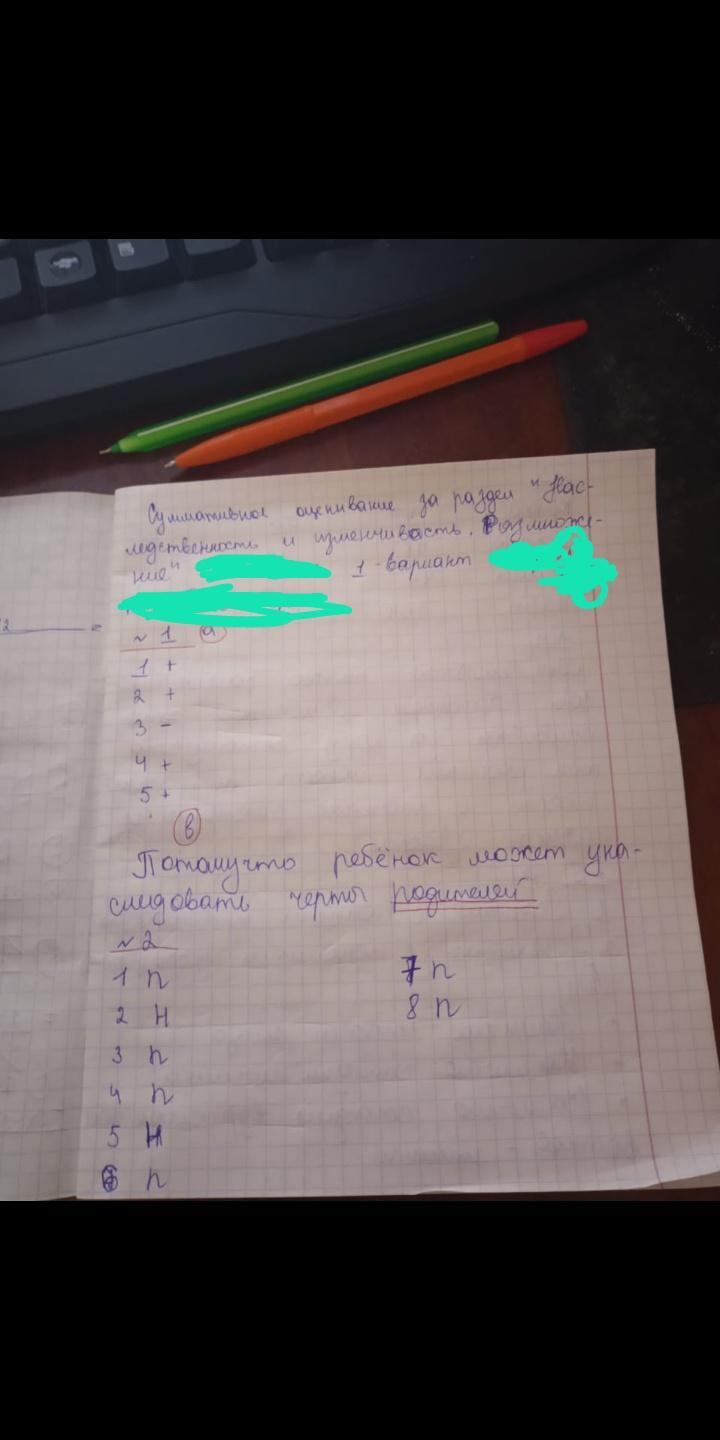 Суммативное оценивание за раздел "Нас-
ледственность и изменчивость. Размноже-
ние" 1 - вариант
2 =
№ 1 а
1 +
2 +
3 -
4 +
5 +
в
Потомучто ребёнок может уна-
следовать черты родителей
№ 2
1 п
2 Н
3 п
4 п
5 Н
6 п
7 п
8 п